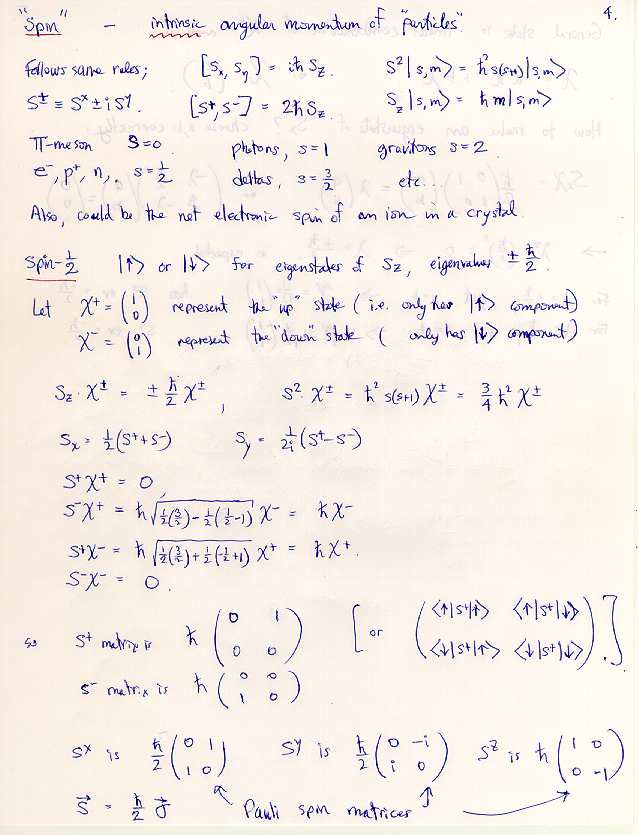 4.
"Spin" — intrinsic angular momentum of "particles".
Follows same rules; [Sx, Sy] = iħ Sz. S²|s,m> = ħ²s(s+1)|s,m>
S± ≡ Sx ± i Sy. [S+, S-] = 2ħ Sz. Sz|s,m> = ħm|s,m>
π-meson S=0 photons, s=1 gravitons s=2.
e⁻, p⁺, n, s=1/2 deltas, s=3/2 etc...
Also, could be the net electronic spin of an ion in a crystal.
Spin-1/2 |↑> or |↓> for eigenstates of Sz, eigenvalues ± ħ/2.
Let χ+ = (1 0) represent the "up" state (i.e. only has |↑> component)
χ- = (0 1) represent the "down" state ( only has |↓> component)
Sz·χ± = ± ħ/2 χ±, S²·χ± = ħ² s(s+1) χ± = 3/4 ħ² χ±
Sx = 1/2(S+ + S-) Sy = 1/2i (S+ - S-)
S+χ+ = 0
S-χ+ = ħ√(1/2(3/2) - 1/2(1/2-1)) χ- = ħχ-
S+χ- = ħ√(1/2(3/2) + 1/2(-1/2+1)) χ+ = ħχ+.
S-χ- = 0.
so S+ matrix is ħ (0 1 0 0) [or (<↑|S+|↑> <↑|S+|↓> <↓|S+|↑> <↓|S+|↓>).]
S- matrix is ħ (0 0 1 0)
Sx is ħ/2 (0 1 1 0) Sy is ħ/2 (0 -i i 0) Sz is ħ (1 0 0 -1)
S = ħ/2 σ Pauli spin matrices